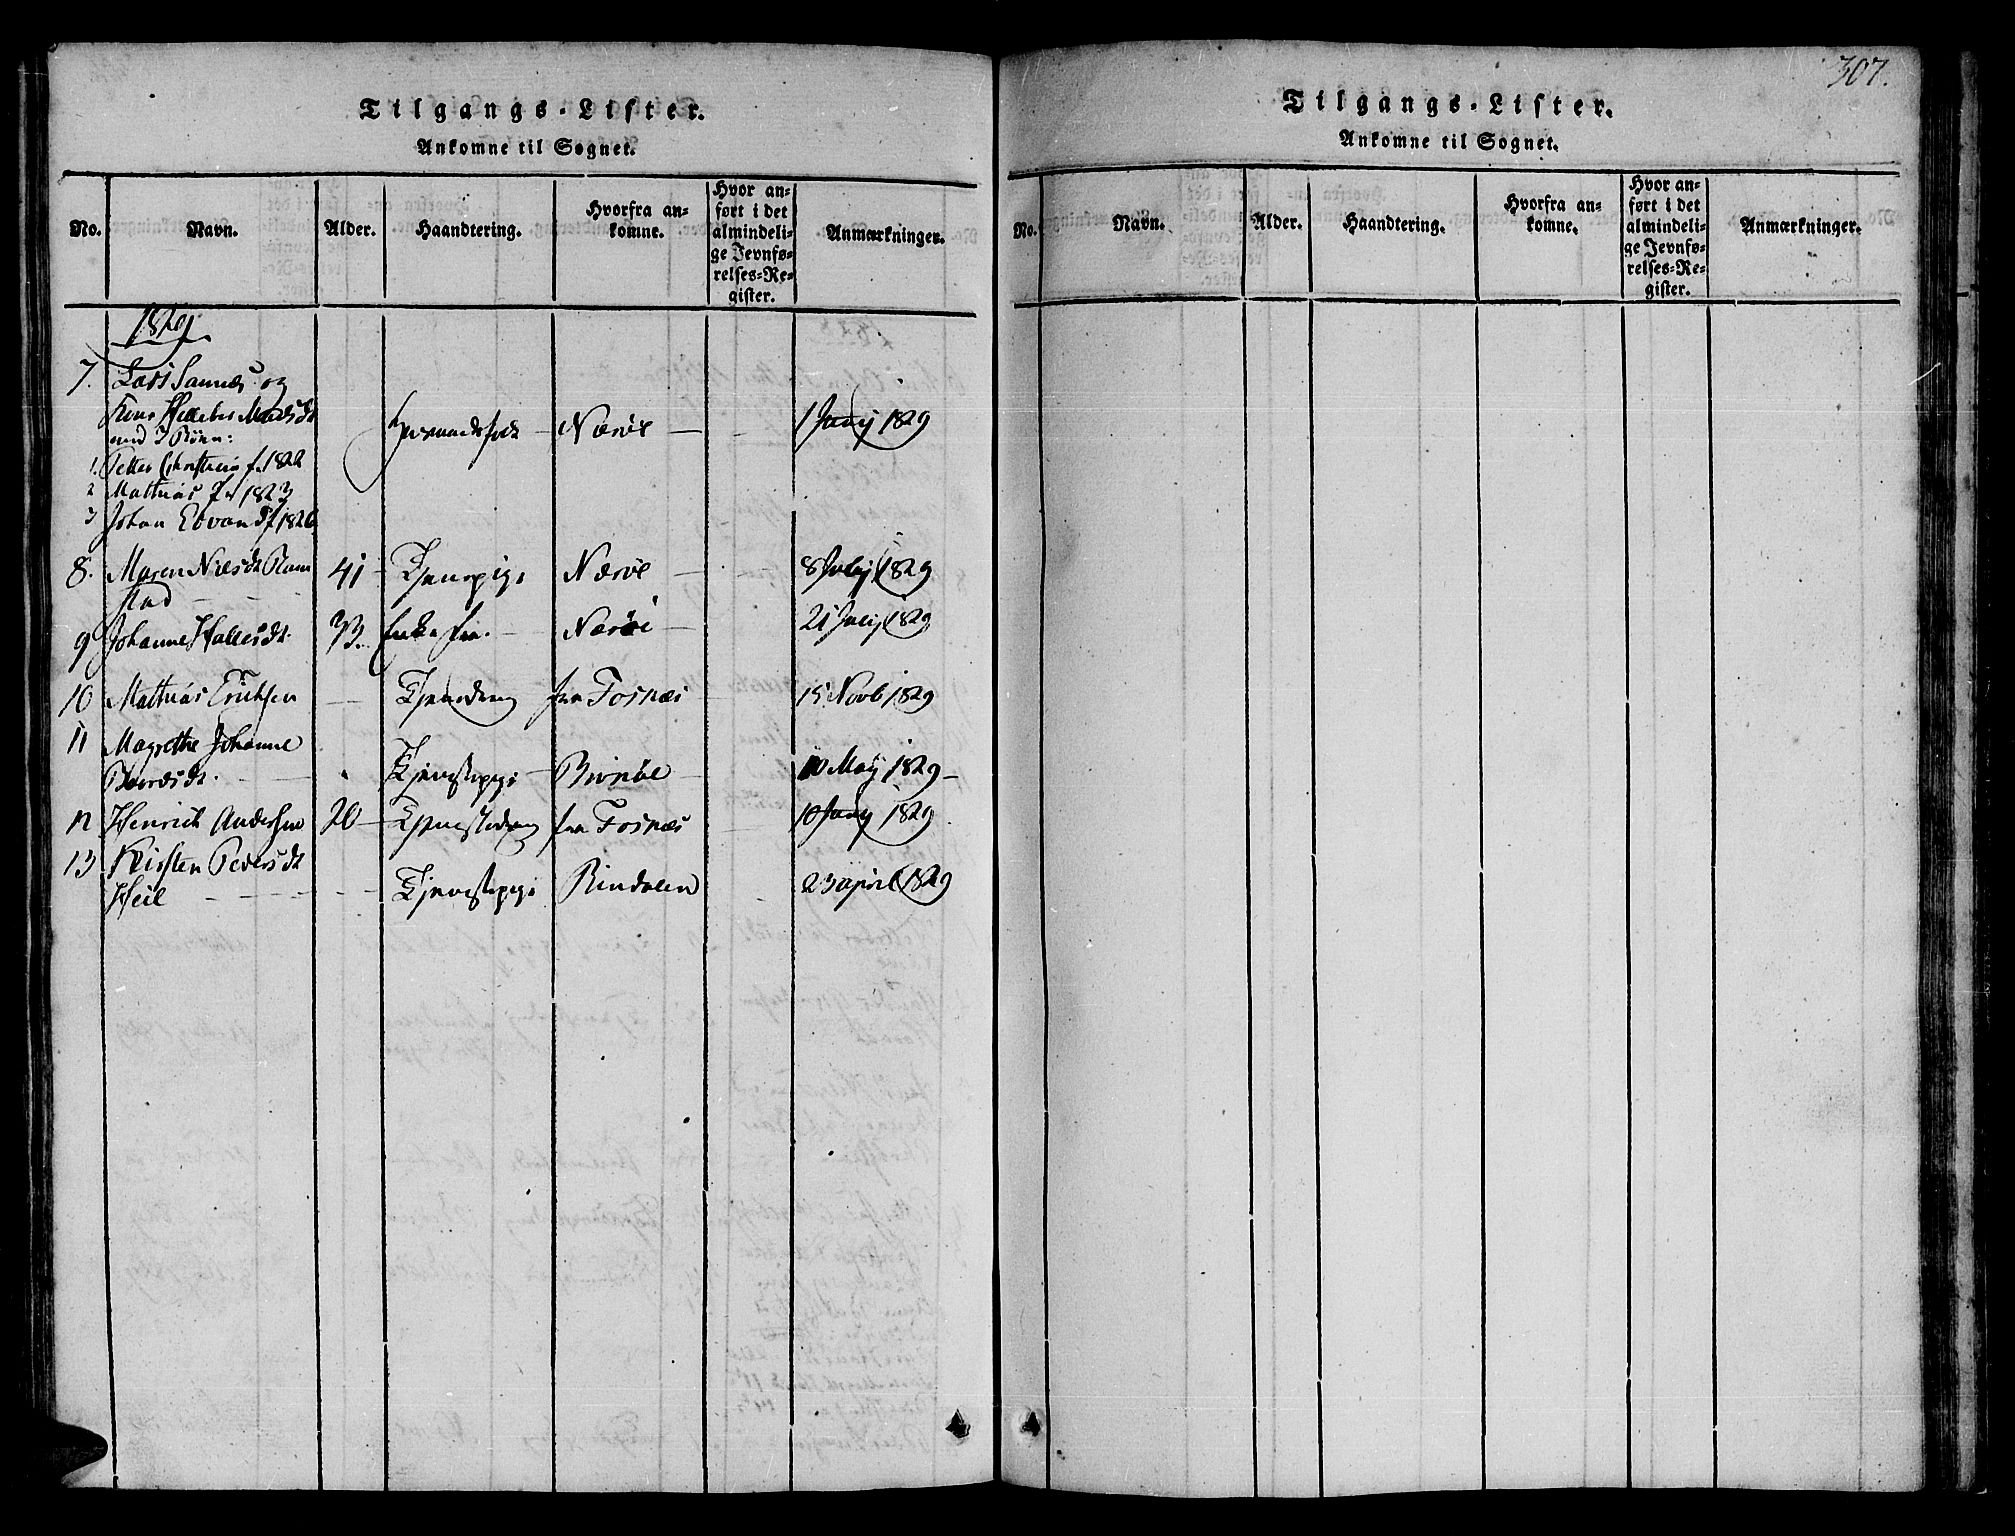 Tilgangs-Lister.
Ankomne til Sognet.
No. Navn. Alder. Haandtering. Hvorfra an-
komne. Hvor an-
ført i det
almindeli-
ge Jevnfø-
relses-Re-
gister. Anmærkninger.
1829
7. Lars Sannæs og
Hellebor Madsdt
med 3 Børn:
Huusmandsfolk Nærøe 1 Juny 1829
1. Petter f. 1822
2 Mathias f. 1823
3 Johan f 1826
8. Maren Nilsdt Ram
stad 41 Tjenespige Nærøe 8 July 1829
9 Johanne Hallesdt. 73. Enke fra Nærøe 21 July 1829
10 Mathias Erichsen Tjenedreng fra Fosnæs 15 Novb 1829
11 Magrethe Johanne
Baardsdt. Tjenestepige Bivnøe 10 May 1829
12 Henrich Andersen 20 Tjenestedreng fra Fosnæs 10 Juny 1829
13 Kirsten Pedersdt
Heil Tjenestepige Bindalen 23 April 1829
307.
Tilgangs-Lister.
Ankomne til Sognet.
No. Navn. Alder. Haandtering. Hvorfra an-
komne. Hvor an-
ført i det
almindeli-
ge Jevnfø-
relses-Re-
gister. Anmærkninger.